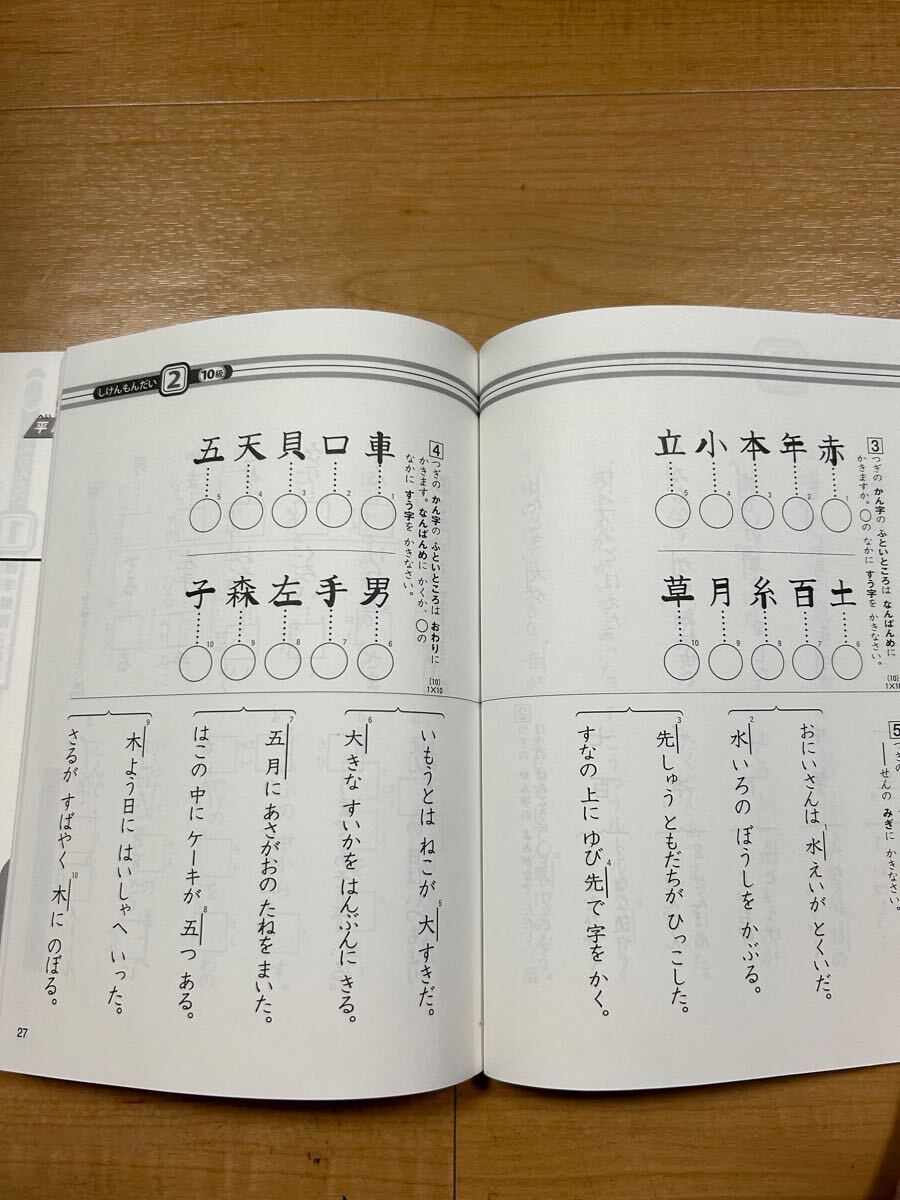 3
つぎの かん字の ふといところは なんばんめに
かきますか。○の なかに すう字を かきなさい。
(10)
1×10
赤 1
年 2
本 3
小 4
立 5
土 6
百 7
糸 8
月 9
草 10
5
つぎの
せんの みぎに かきなさい。
おにいさんは 水えいが とくいだ。 1
水いろの ぼうしを かぶる。 2
先しゅう ともだちが ひっこした。 3
すなの 上に ゆび先で 字を かく。 4
しけんもんだい 2 10級
4
つぎの かん字の ふといところは おわりに
かきます。なんばんめに かくか、○の
なかに すう字を かきなさい。
(10)
1×10
車 1
口 2
貝 3
天 4
五 5
男 6
手 7
左 8
森 9
子 10
いもうとは ねこが 大すきだ。 5
大きな すいかを はんぶんに きる。 6
五月に あさがおの たねを まいた。 7
はこの 中に ケーキが 五つ ある。 8
木よう日に はいしゃへ いった。 9
さるが すばやく 木に のぼる。 10
27